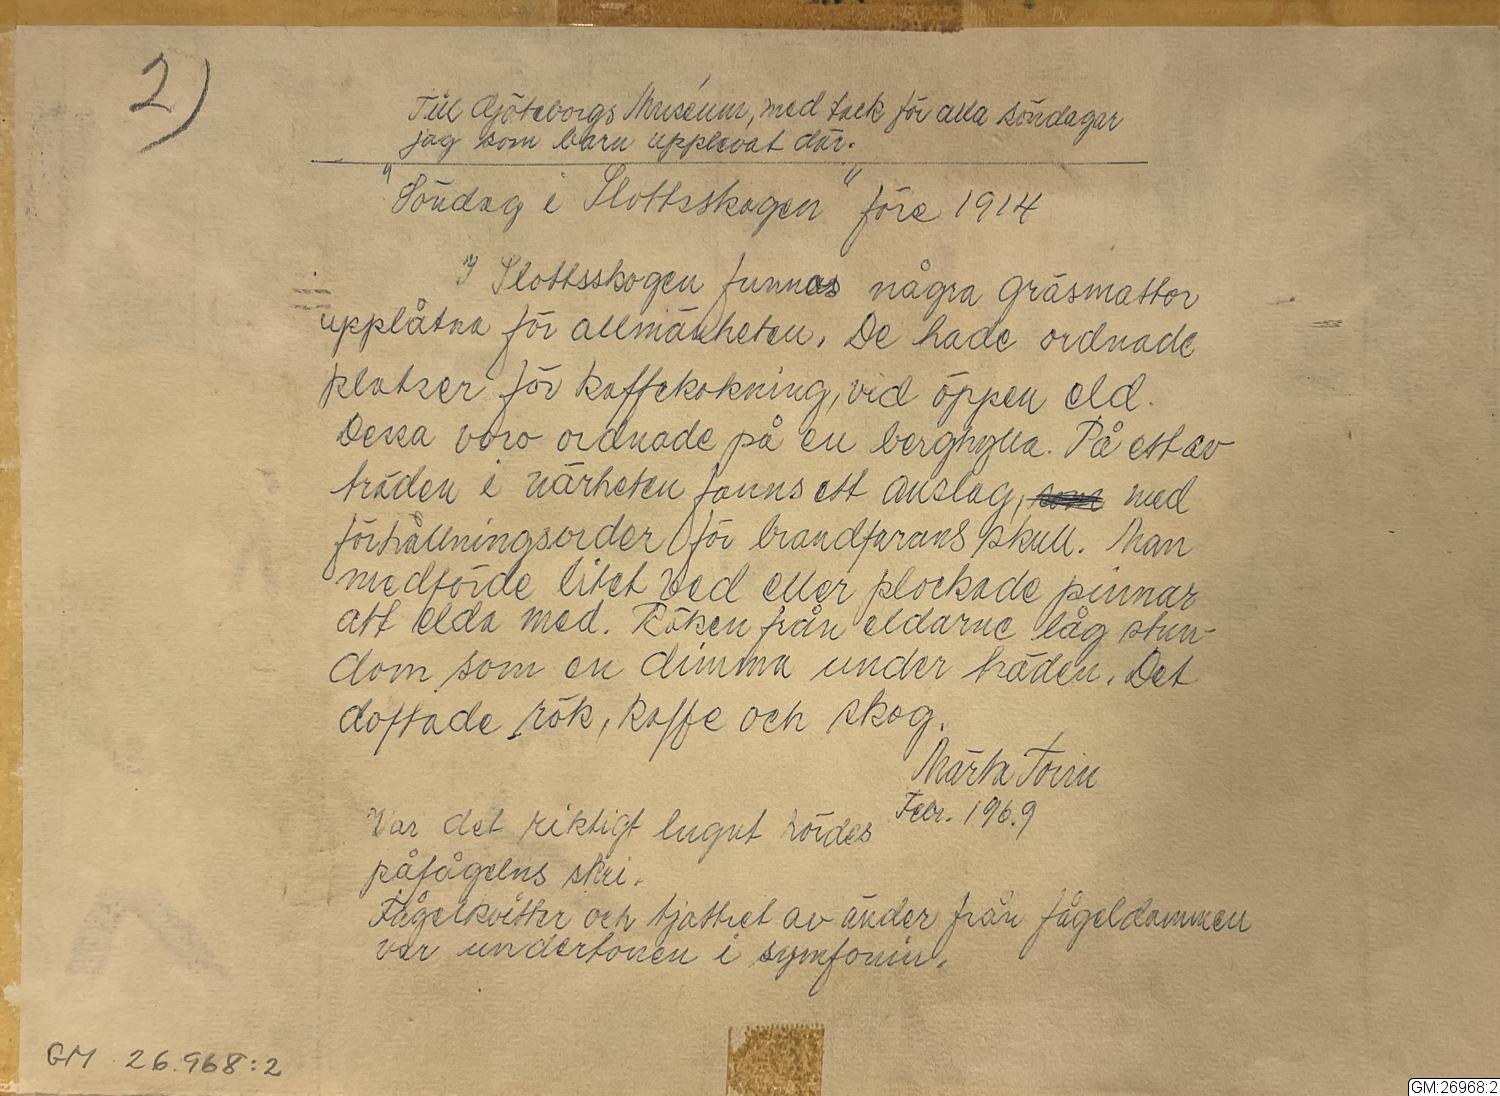 2)
Till Göteborgs Muséum, med tack för alla söndagar
jag som barn upplevat där.
"Söndag i Slottsskogen" före 1914
I Slottsskogen funnos några gräsmattor
upplåtna för allmänheten. De hade ordnade
platser för kaffekokning, vid öppen eld.
Dessa voro ordnade på en berghylla. På ett av
träden i närheten fanns ett anslag, som med
förhållningsorder för brandfarans skull. Man
medförde litet ved eller plockade pinnar
att elda med. Röken från eldarne låg stun-
dom som en dimma under träden. Det
doftade rök, kaffe och skog.
Märta
Febr. 1969
Var det riktigt lugnt hördes
påfågelns skri.
Fågelkvitter och tjattret av änder från fågeldammen
var undertonen i symfonin.
GM 26.968:2
GM:26968:2